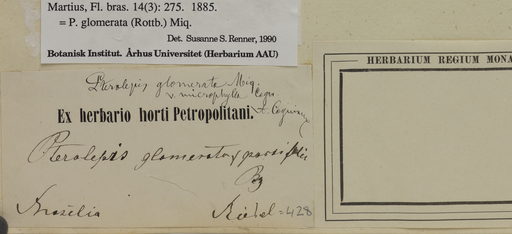 Martius, Fl. bras. 14(3): 275. 1885.
= P. glomerata (Rottb.) Miq.
Det. Susanne S. Renner, 1990
Botanisk Institut. Århus Universitet (Herbarium AAU)
HERBARIUM REGIUM MONA
Pterolepis glomerata Miq.
v. microphylla Cogn.
Ex herbario horti Petropolitani.
A. Cogniaux
Pterolepis glomerata
Brasilia
Riedel = 428